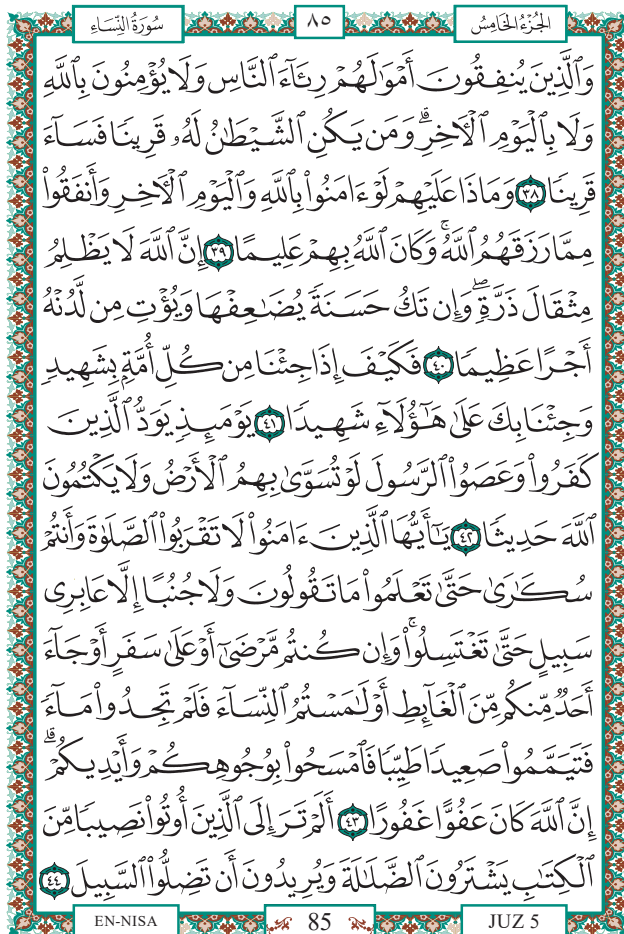 الجُزْءُ الخَامِسُ ٨٥ سُورَةُ النِّسَاءِ
وَٱلَّذِينَ يُنفِقُونَ أَمْوَٰلَهُمْ رِئَآءَ ٱلنَّاسِ وَلَا يُؤْمِنُونَ بِٱللَّهِ
وَلَا بِٱلْيَوْمِ ٱلْـَٔاخِرِۗ وَمَن يَكُنِ ٱلشَّيْطَـٰنُ لَهُۥ قَرِينًا فَسَآءَ
قَرِينًا ٣٨ وَمَاذَا عَلَيْهِمْ لَوْ ءَامَنُوا۟ بِٱللَّهِ وَٱلْيَوْمِ ٱلْـَٔاخِرِ وَأَنفَقُوا۟
مِمَّا رَزَقَهُمُ ٱللَّهُۚ وَكَانَ ٱللَّهُ بِهِمْ عَلِيمًا ٣٩ إِنَّ ٱللَّهَ لَا يَظْلِمُ
مِثْقَالَ ذَرَّةٍۖ وَإِن تَكُ حَسَنَةً يُضَـٰعِفْهَا وَيُؤْتِ مِن لَّدُنْهُ
أَجْرًا عَظِيمًا ٤٠ فَكَيْفَ إِذَا جِئْنَا مِن كُلِّ أُمَّةٍۭ بِشَهِيدٍ
وَجِئْنَا بِكَ عَلَىٰ هَـٰٓؤُلَآءِ شَهِيدًا ٤١ يَوْمَئِذٍ يَوَدُّ ٱلَّذِينَ
كَفَرُوا۟ وَعَصَوُا۟ ٱلرَّسُولَ لَوْ تُسَوَّىٰ بِهِمُ ٱلْأَرْضُ وَلَا يَكْتُمُونَ
ٱللَّهَ حَدِيثًا ٤٢ يَـٰٓأَيُّهَا ٱلَّذِينَ ءَامَنُوا۟ لَا تَقْرَبُوا۟ ٱلصَّلَوٰةَ وَأَنتُمْ
سُكَـٰرَىٰ حَتَّىٰ تَعْلَمُوا۟ مَا تَقُولُونَ وَلَا جُنُبًا إِلَّا عَابِرِى
سَبِيلٍ حَتَّىٰ تَغْتَسِلُوا۟ۚ وَإِن كُنتُم مَّرْضَىٰٓ أَوْ عَلَىٰ سَفَرٍ أَوْ جَآءَ
أَحَدٌ مِّنكُم مِّنَ ٱلْغَآئِطِ أَوْ لَـٰمَسْتُمُ ٱلنِّسَآءَ فَلَمْ تَجِدُوا۟ مَآءً
فَتَيَمَّمُوا۟ صَعِيدًا طَيِّبًا فَٱمْسَحُوا۟ بِوُجُوهِكُمْ وَأَيْدِيكُمْۗ
إِنَّ ٱللَّهَ كَانَ عَفُوًّا غَفُورًا ٤٣ أَلَمْ تَرَ إِلَى ٱلَّذِينَ أُوتُوا۟ نَصِيبًا مِّنَ
ٱلْكِتَـٰبِ يَشْتَرُونَ ٱلضَّلَـٰلَةَ وَيُرِيدُونَ أَن تَضِلُّوا۟ ٱلسَّبِيلَ ٤٤
EN-NISA 85 JUZ 5